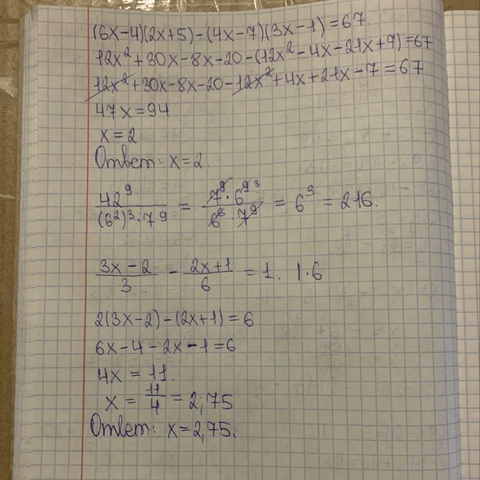 (6x-4)(2x+5)-(4x-7)(3x-1)=67
12x²+30x-8x-20-(12x²-4x-21x+7)=67
12x²+30x-8x-20-12x²+4x+21x-7=67
47x=94
x=2
Ответ: x=2.
42⁹/((6²)³·7⁹) = (7⁹·6⁹ ³)/(6⁶ 7⁹) = 6³ = 216.
(3x-2)/3 - (2x+1)/6 = 1. |·6
2(3x-2)-(2x+1)=6
6x-4-2x-1=6
4x=11.
x = 11/4 = 2,75
Ответ: x=2,75.